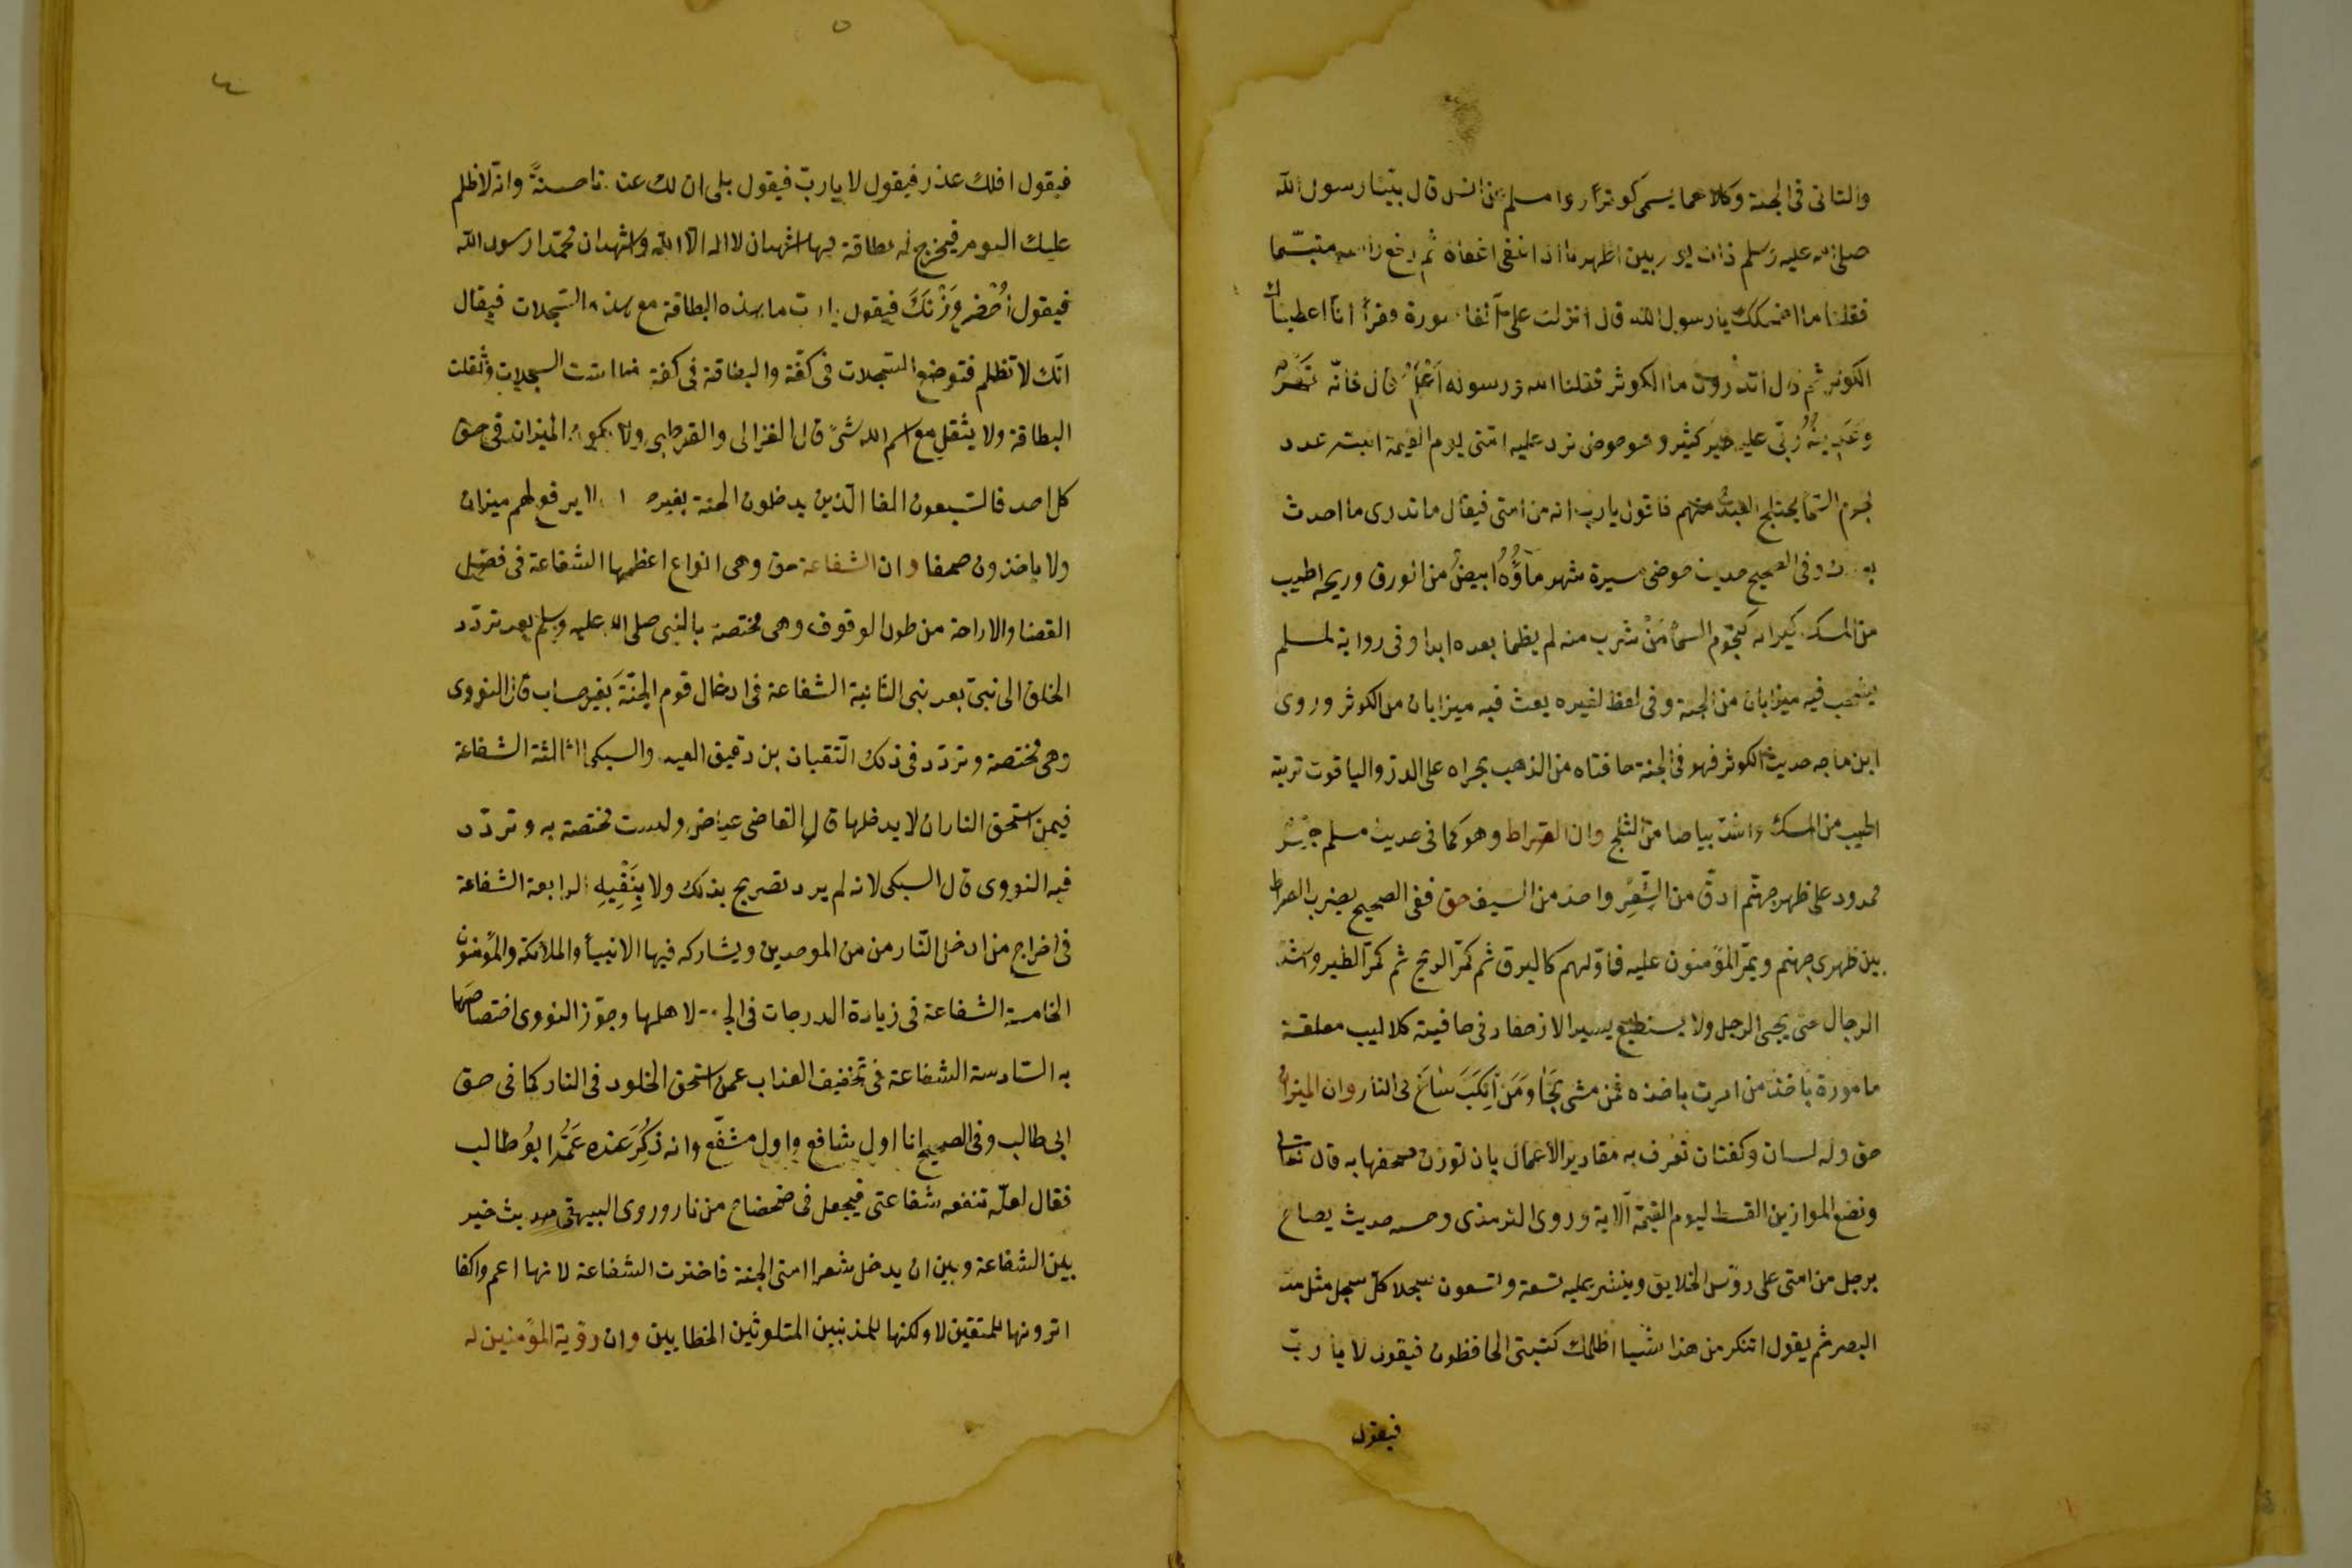 والثانى فى الجنة وكلاهما يسمى كوثرا روا مسلم عن انس قال بيننا رسول الله
صلى الله عليه وسلم ذات يوم بين اظهرنا اذا غفى اغفاة ثم رفع راسه متبسّما
فقلنا ما اضحكك يا رسول الله قال انزلت علىّ آنفا سورة وقرأ انّا اعطيناك
الكوثر ثم قال اتدرون ما الكوثر فقلنا الله ورسوله اَعْلَمُ قال فانّه نَهَرٌ
وعَدَنِيهُ رُبّى عليه خير كثير وهو حوض ترد عليه امّتى يوم القيمة آنيته عدد
نجوم السّمآ يختلج العبدُ منهم فاقول يارب انه من امّتى فيقال ما تدرى ما احدث
بعدك وفى الصحيح حديث حوضى مسيرة شهر ماؤُهُ ابيضُ من الورق وريحه اطيب
من المسك كيزانه كنجوم السمآ مَنْ شرب منه لم يظمأ بعده ابدا وفى رواية لمسلم
يشخب فيه ميزابان من الجنة وفى لفظ لغيره يغث فيه ميزابان من الكوثر وروى
ابن ماجه حديث الكوثر فهو فى الجنة حافتاه من الذهب مجراه على الدرّ والياقوت تربته
اطيب من المسك واشدّ بياضا من الثلج وان الصّراط وهو كما فى حديث مسلم جِسْرٌ
ممدود على ظهر جهنّم ادقّ من الشّعِر واحدّ من السّيف حق ففى الصحيح يضرب الصراط
بين ظهرى جهنم ويمرّ المؤمنون عليه فاوّلهم كالبرق ثم كمرّ الريح ثم كمرّ الطير واشدّ
الرجال حتى يجى الرجل ولا يستطيع يسير الا زحفا وفى حافيته كلاليب معلقة
مامورة تاخذ من امرت باخذه فمن مشى نَجَا ومَنْ نكب ساخ فى النار وان الميزان
حق وله لسان وكفتان تعرف به مقادير الأعمال بان توزن صحفها به قال تعالى
ونضع الموازين القسط ليوم القيمة الآية وروى الترمذى وحسنه حديث يصاح
برجل من امتى على رؤس الخلايق وينشر عليه تسعة وتسعون سجلا كلّ سجل مثل مدّ
البصر ثم يقول اتنكر من هذا شيأ اظلمك كتبتى الحافظون فيقول لا يا ربّ
فيقول
٥
٤
فيقول افلك عذر فيقول لا يا ربّ فيقول بلى ان لك عندنا حسنةً وانه لا ظلم
عليك اليوم فيخرج له بطاقة فيها اشهد ان لا اله الا الله واشهد ان محمّدا رسول الله
فيقول اُحْضر وَزْنَكَ فيقول يا ربّ ما هذه البطاقة مع هذه السّجلات فيقال
انّك لا تظلم فتوضع السّجلات فى كفّة والبطاقة فى كفة فطاشت السجلات وثقلت
البطاقة ولا يثقل مع اسم الله شئ قال الغزالى والقرطبى ولا يكون الميزان فى حق
كل احد فالسّبعون الفا الّذين يدخلون الجنة بغير حساب لا يرفع لهم ميزان
ولا ياخذون صحفا وان الشفاعة حق وهى انواع اعظمها الشفاعة فى فصل
القضا والاراحة من طول الوقوف وهى مختصة بالنبى صلى الله عليه وسلم بعد تردّد
الخلق الى نبىّ بعد نبى الثانية الشفاعة فى ادخال قوم الجنّةَ بغير حساب قال النووى
وهى مختصة وتردّد فى ذلك التّقيان بن دقيق العيد والسبكى الثالثة الشفاعة
فيمن استحق النار ان لا يدخلها قال القاضى عياض وليست مختصة به وتردّد
فيه النووى قال السبكى لانه لم يرد تصريح بذلك ولا بِنَفْيِهِ الرابعة الشفاعة
فى اخراج من ادخل النّار من من الموحدين ويشاركه فيها الانبيأ والملائكة والمؤمنون
الخامسة الشفاعة فى زيادة الدرجات فى الجنة لاهلها وجوّز النووى اختصاصَها
به السّادسة الشفاعة فى تخفيف العذاب عمن استحق الخلود فى النار كما فى حق
ابى طالب وفى الصحيح انا اول شافع واول مشفّع وانه ذُكِرَ عنده عَمُّه ابوُ طالب
فقال لعلّه تنفعه شفاعتى فيجعل فى ضحضاح من نار وروى البيهقى حديث خير
بين الشفاعة وبين ان يدخل شعرا امتى الجنة فاخترت الشفاعة لانها اعم واكفا
اترونها للمتقين لا ولكنها للمذنبين المتلوثين الخطايين وان رؤية المؤمنين له